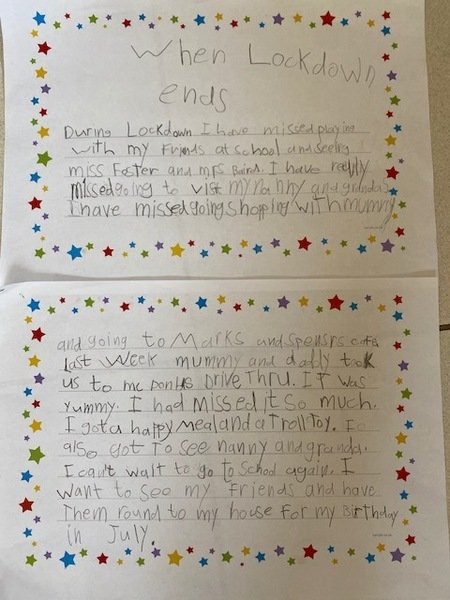 When Lockdown
ends
During Lockdown I have missed playing
with my Friends at school and seeing
miss Foster and mrs Baird. I have really
missed going to visit my nanny and granda
I have missed going shopping with mummy
and going to Marks and spensrs cafe.
Last week mummy and daddy took
us to mc Donlds Drive Thru. IT was
yummy. I had missed it so much.
I got a happy meal and a Troll Toy. I
also got To see nanny and granda.
I can't wait to go to School again. I
want to see my Friends and have
Them round to my house for my Birthday
in July.